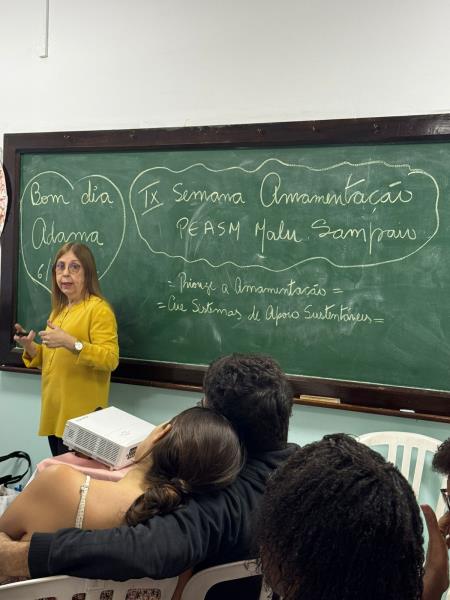 Bom dia
Adama
6/
IX Semana Amamentação
PEASM Malu Sampaio
= Priorize a Amamentação =
= Crie Sistemas de Apoio Sustentáveis =